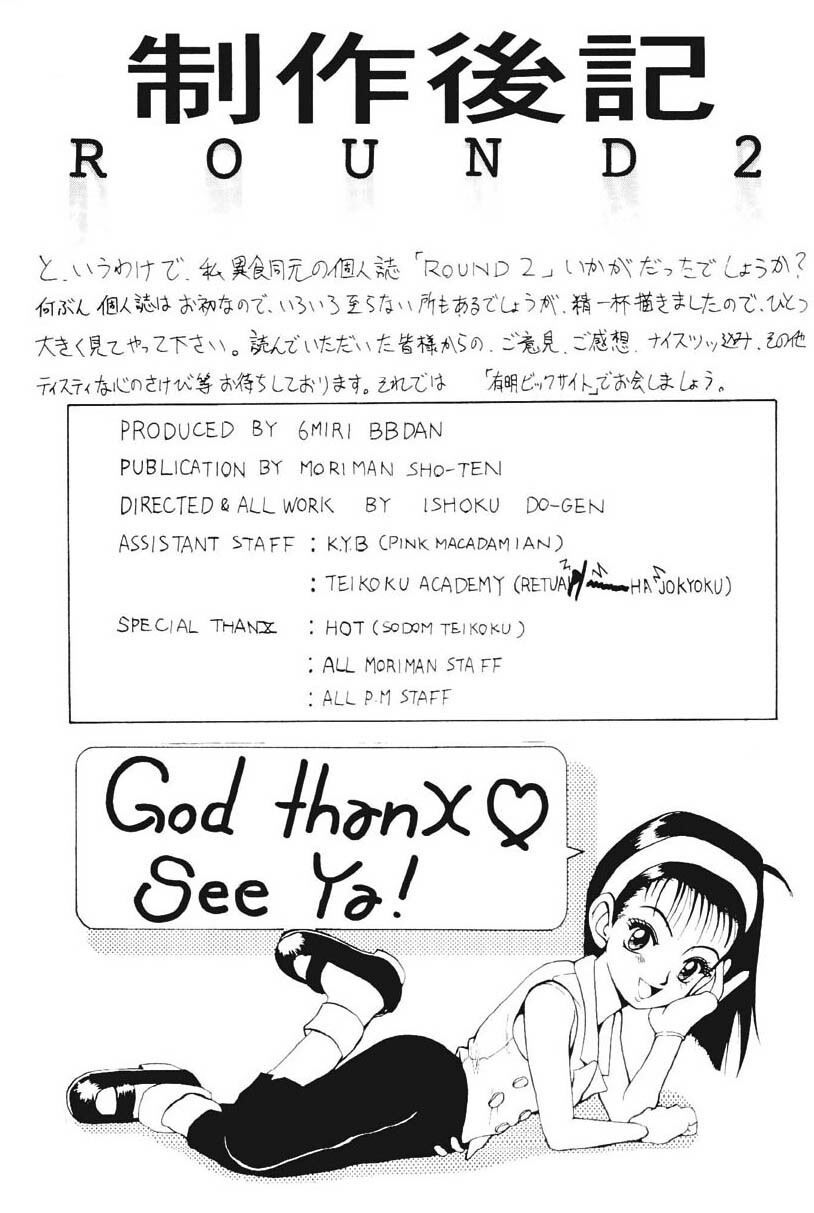 制作後記
ROUND2
と、いうわけで、私 異食同元の個人誌「ROUND 2」いかがだったでしょうか?
何ぶん個人誌はお初なので、いろいろ至らない所もあるでしょうが、精一杯描きましたので、ひとつ
大きく見てやって下さい。読んでいただいた皆様からの、ご意見、ご感想、ナイスツッ込み、その他
テイスティな心のさけび等お待ちしております。それでは 「有明ビックサイト」でお会しましょう。
PRODUCED BY 6MIRI BBDAN
PUBLICATION BY MORIMAN SHO-TEN
DIRECTED & ALL WORK BY ISHOKU DO-GEN
ASSISTANT STAFF : K.Y.B (PINK MACADAMIAN)
: TEIKOKU ACADEMY (RETUA HA JOKYOKU)
SPECIAL THANX : HOT (SODOM TEIKOKU)
: ALL MORIMAN STAFF
: ALL P.M STAFF
God thanX♡
See Ya!